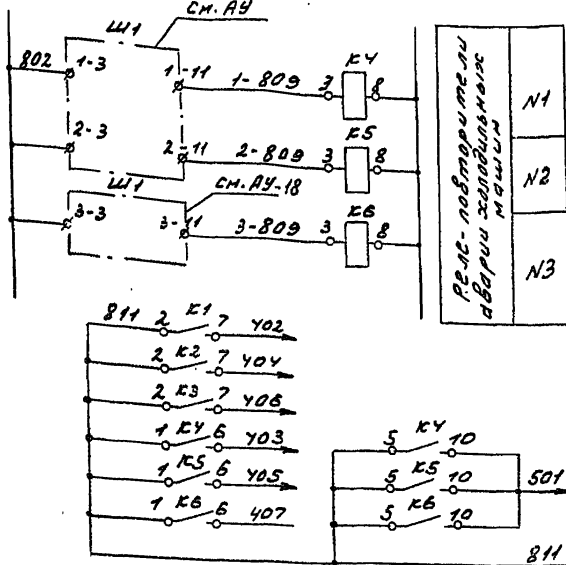 см. АУ
Ш1
802
1-3
1-11
1-809
3
К4
8
2-3
2-11
2-809
3
К5
8
Ш1
см. АУ-18
3-3
3-11
3-809
3
К6
8
Реле-повторители
аварии холодильных
машин
N1
N2
N3
811
2 К1 7 402
2 К2 7 404
2 К3 7 406
1 К4 6 403
1 К5 6 405
1 К6 6 407
5 К4 10
5 К5 10
5 К6 10
501
811